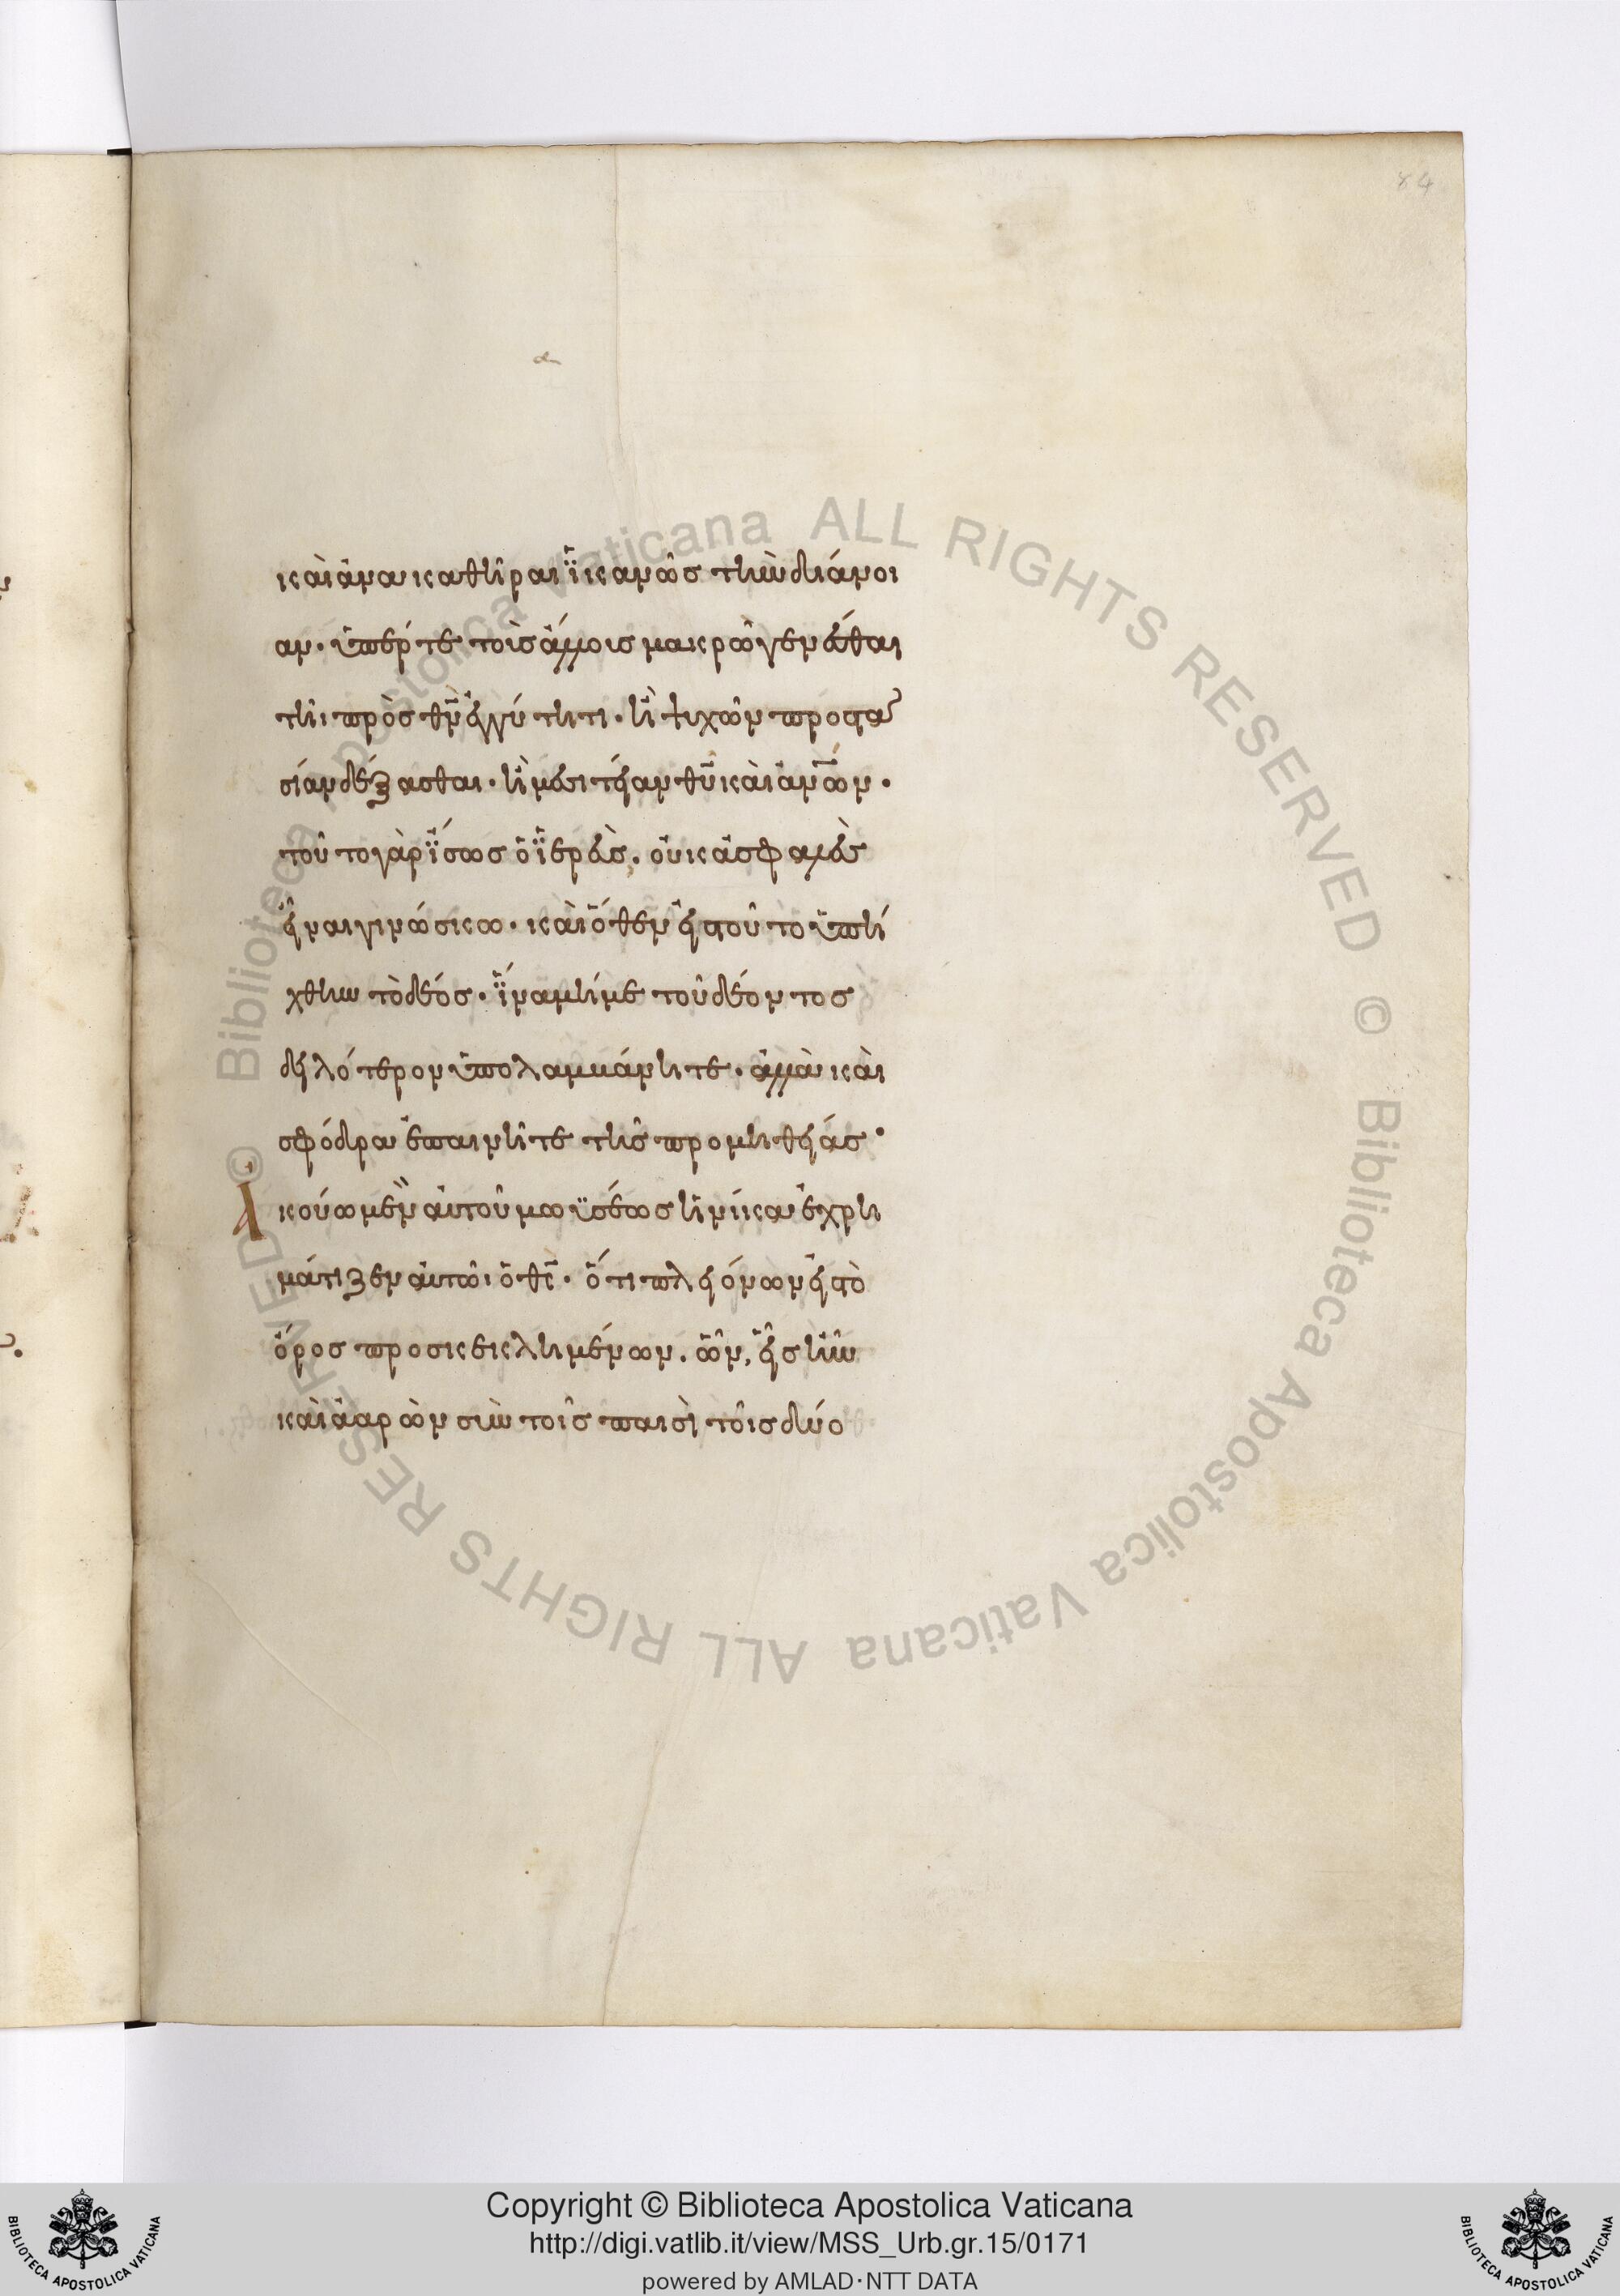 84
καὶ ἀνακαθῆραι ἱκανῶς τὴν διάνοι
αν· ὑπέρ τε τοὺς ἄλλοις μακρῶ γενέσθαι
τῆι πρὸς θν̅ ἐγγύτητι· ἢ ψυχῶν προστα
σίαν δέξασθαι· ἢ μεσιτείαν θυ̅ καὶ ἀνων̅·
τοῦτο γὰρ ἴσως ὁ ἱερεὺς. οὐκ ἀσφαλὲς
εἶναι γινώσκω· καὶ ὅθεν εἰς τοῦτο ὑπή
χθην τὸ δέος· ἵνα μή με τοῦ δέοντος
δειλότερον ὑπολαμβάνητε· ἀλλὰ καὶ
σφόδρα ἐπαινῆτε τῆς προμηθείας·
Ἀκούω μὲν αὐτοῦ μωϋσέως ἡνίκα ἐχρη
μάτιζεν αὐτῶι ὁ θς̅· ὅτι πλειόνων εἰς τὸ
ὄρος προσκεκλημένων. ὧν, εἷς ἦν
καὶ ἀαρὼν σὺν τοῖς παισὶ τοῖς δύο
Copyright © Biblioteca Apostolica Vaticana
http://digi.vatlib.it/view/MSS_Urb.gr.15/0171
powered by AMLAD·NTT DATA
BIBLIOTECA APOSTOLICA VATICANA
BIBLIOTECA APOSTOLICA VATICANA
© Biblioteca Apostolica Vaticana ALL RIGHTS RESERVED © Biblioteca Apostolica Vaticana ALL RIGHTS RESERVED